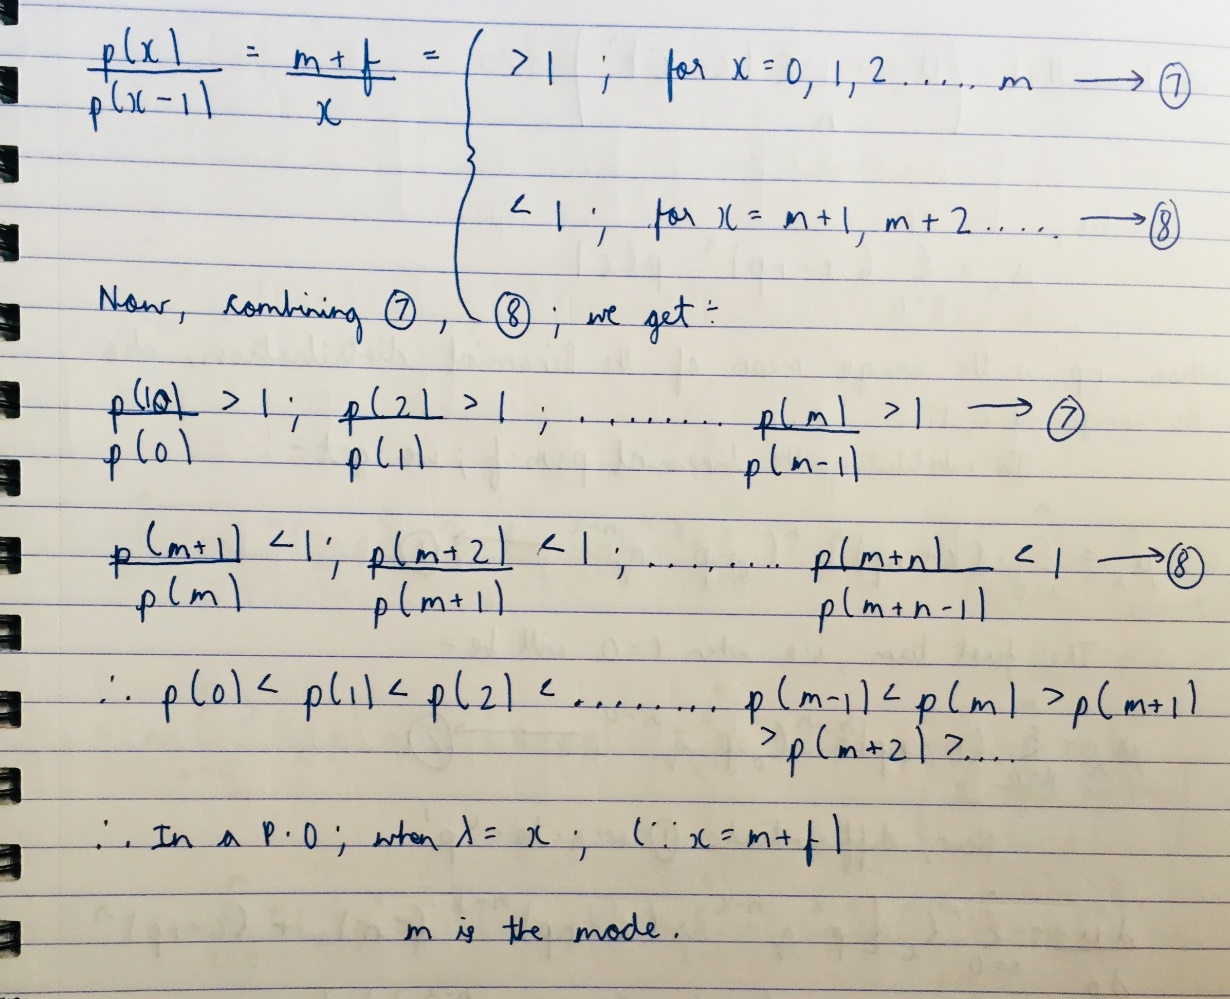 p(x)/p(x-1) = m+f/x = { > 1 ; for x = 0, 1, 2 ..... m → ⑦
< 1 ; for x = m+1, m+2 ..... → ⑧
Now, combining ⑦, ⑧ ; we get ÷
p(1)/p(0) > 1 ; p(2)/p(1) > 1 ; ........ p(m)/p(m-1) > 1 → ⑦
p(m+1)/p(m) < 1 ; p(m+2)/p(m+1) < 1 ; ........ p(m+n)/p(m+n-1) < 1 → ⑧
∴ p(0) < p(1) < p(2) < ......... p(m-1) < p(m) > p(m+1)
> p(m+2) > ....
∴ In a P.D ; when λ = x ; (∵ x = m+f)
m is the mode.